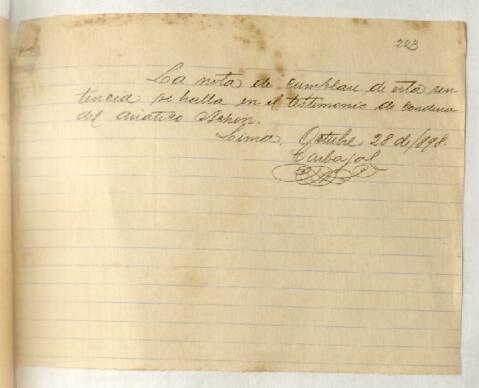 223
La nota de cumplase de esta sen
tencia se halla en el testimonio de condena
del asiatico Achon.
Lima, Octubre 28 de/898.
Carbajal